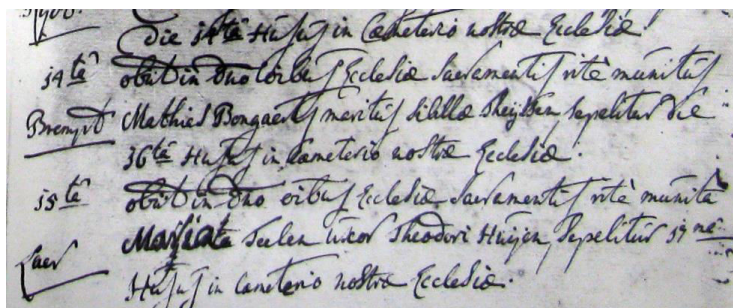 die 14ta Hujus in Cæmeterio nostræ Ecclesiæ.
14ta obiit in dno oibus Ecclesiæ Sacramentis ritè munitus
Mathias Bongaerts maritus Sibillæ Theijssen, sepelitur die
16ta Hujus in Cæmeterio nostræ Ecclesiæ.
15ta obiit in dno oibus Ecclesiæ Sacramentis ritè munita
Laer Seelen uxor Theodori Huijen, Sepelitur 17 ne
Hujus in cameterio nostræ Ecclesiæ.